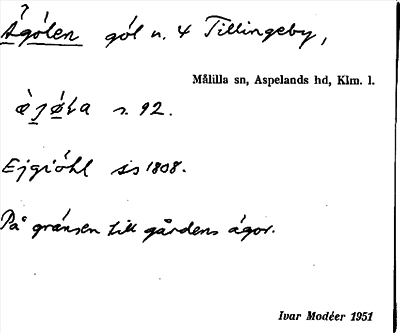 ?
Ägölen göl n. 4 Tillingeby,
Målilla sn, Aspelands hd, Klm. l.
s. 92.
Ejgiöhl sis 1808.
På gränsen till gårdens ägor.
Ivar Modéer 1951